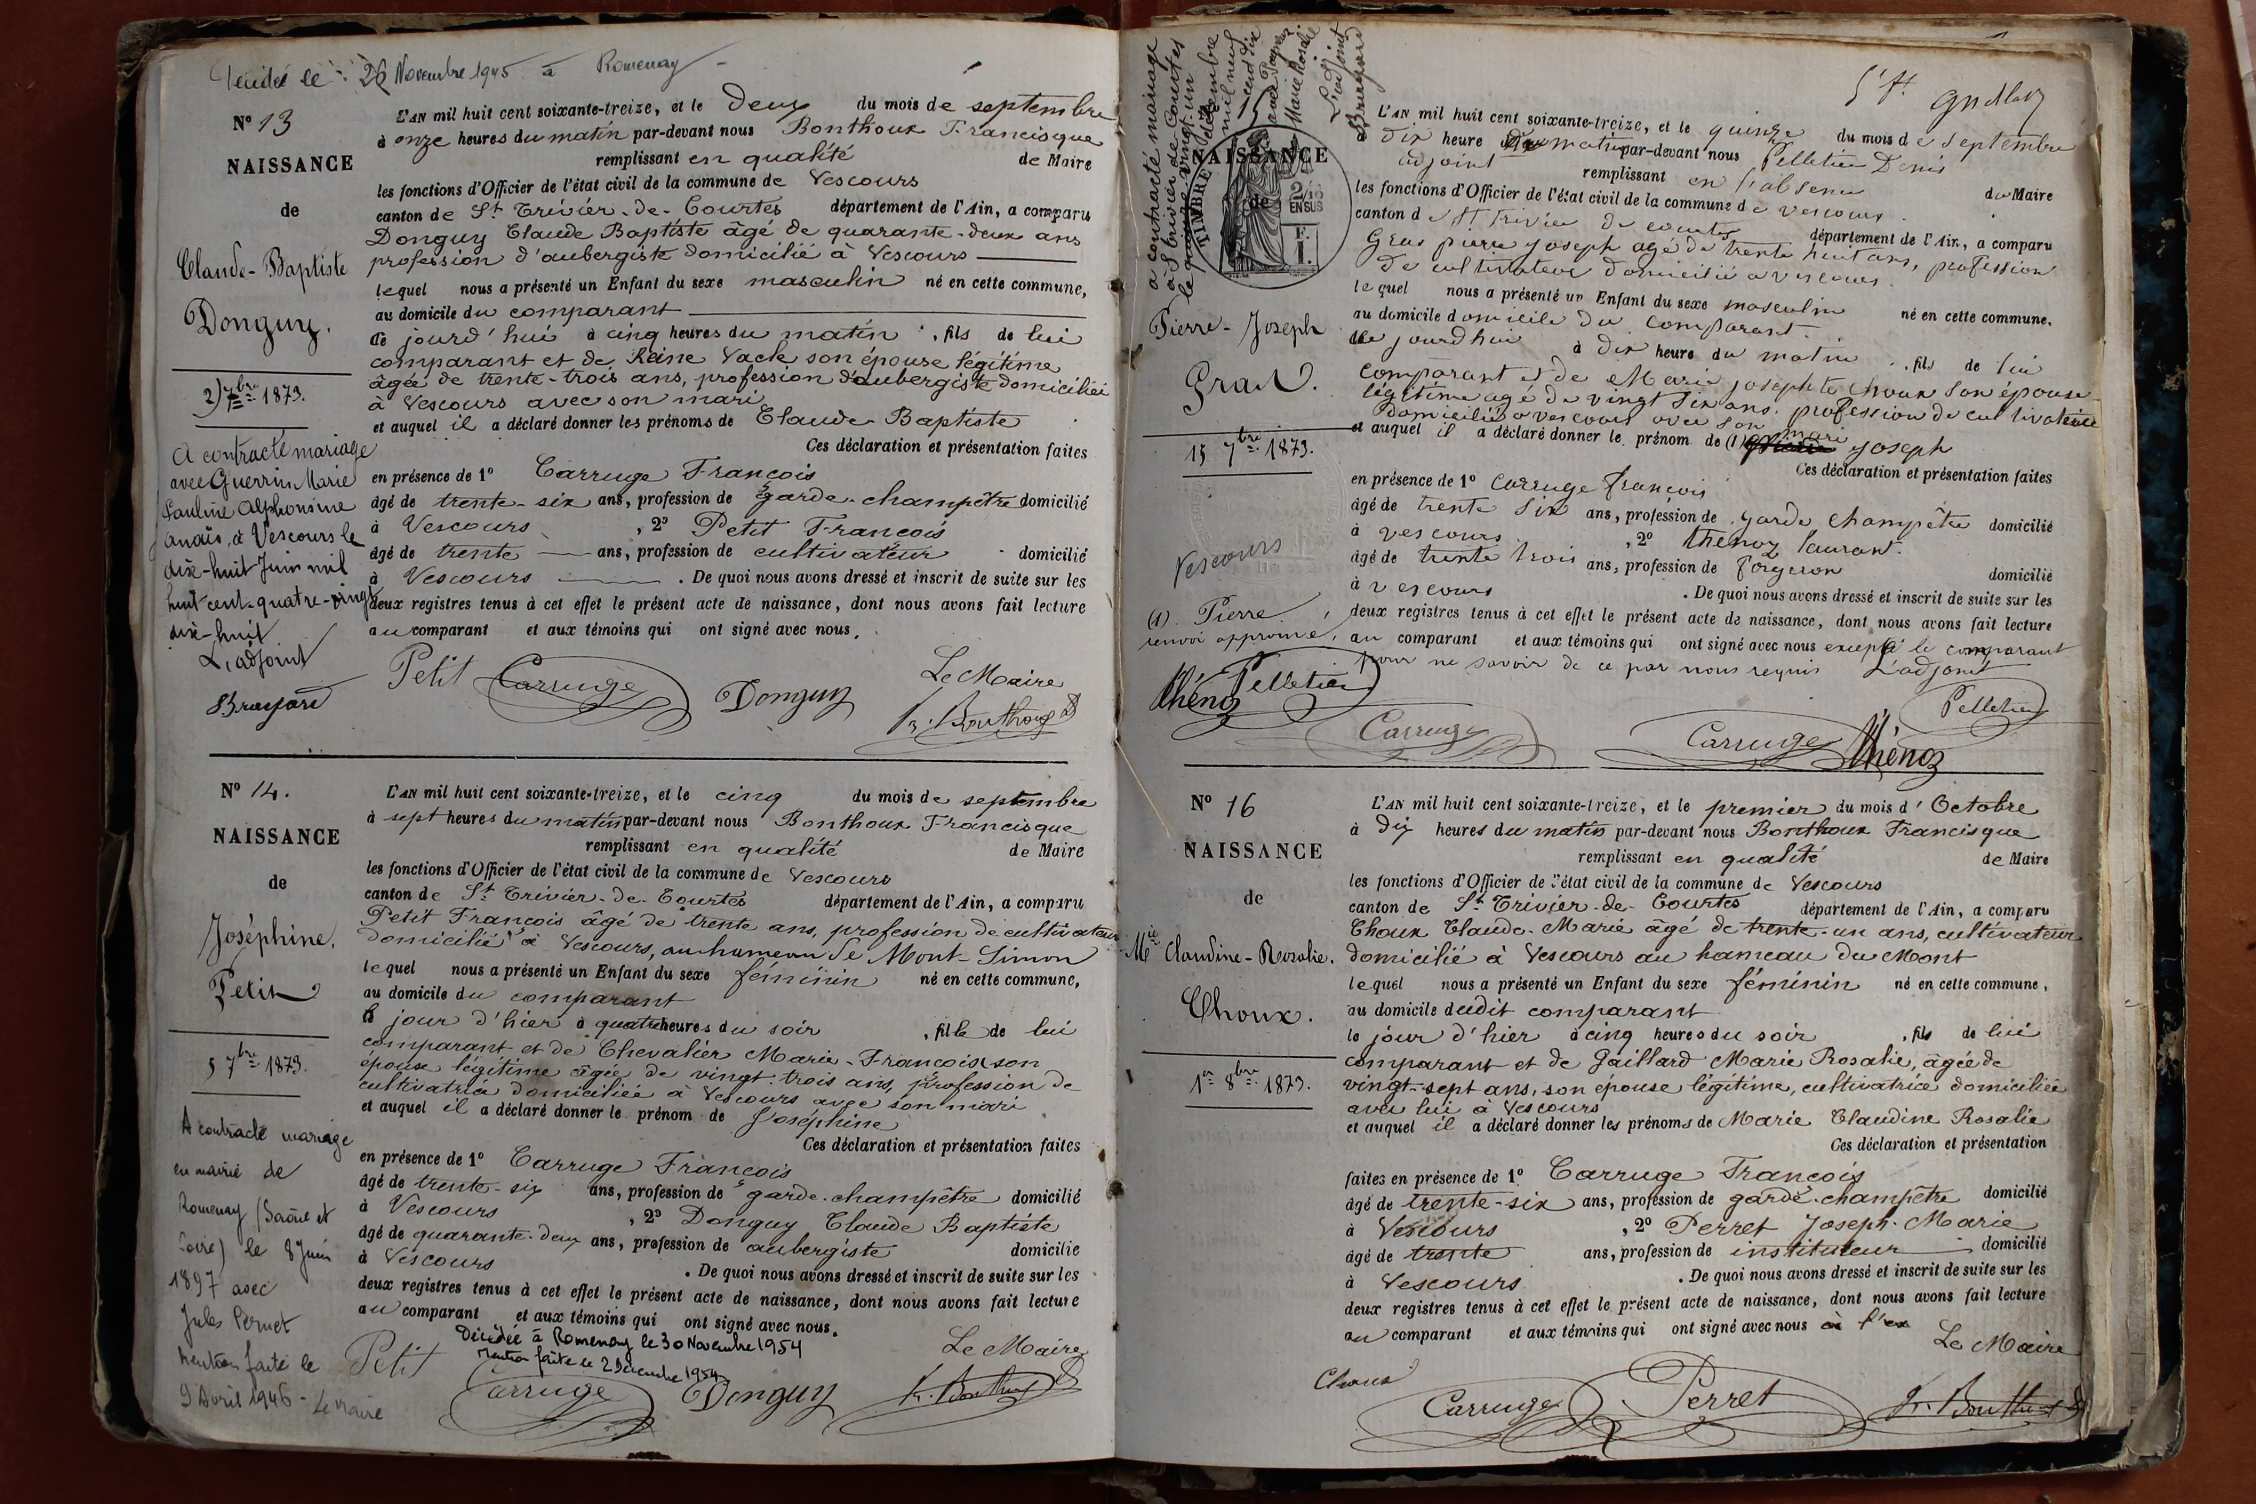 26 Novembre 1945 à Romenay
N° 13
NAISSANCE
de
Claude-Baptiste
Donguy.
2) 7bre 1873.
A contracté mariage
avec Guerrin Marie
Pauline Alphonsine
Anaïs, à Vescours le
dix-huit Juin mil
huit-cent-quatre-vingt
dix-huit
L'adjoint
Brayard
L'AN mil huit cent soixante-treize, et le Deux du mois de septembre
à onze heures du matin par-devant nous Bonthoux Francisque
remplissant en qualité de Maire
les fonctions d'Officier de l'état civil de la commune de Vescours
canton de St Trivier-de-Courtes département de l'Ain, a comparu
Donguy Claude Baptiste âgé de quarante-deux ans
profession d'aubergiste domicilié à Vescours
lequel nous a présenté un Enfant du sexe masculin né en cette commune,
au domicile du comparant
ce jourd'hui à cinq heures du matin, fils de lui
comparant et de Reine Vacle son épouse légitime
âgée de trente-trois ans, profession d'aubergiste domiciliée
à Vescours avec son mari
et auquel il a déclaré donner les prénoms de Claude Baptiste
Ces déclaration et présentation faites
en présence de 1° Carruge François
âgé de trente-six ans, profession de garde-champêtre domicilié
à Vescours, 2° Petit François
âgé de trente ans, profession de cultivateur domicilié
à Vescours. De quoi nous avons dressé et inscrit de suite sur les
deux registres tenus à cet effet le présent acte de naissance, dont nous avons fait lecture
au comparant et aux témoins qui ont signé avec nous.
Petit Carruge Donguy Le Maire
Fr. Bonthoux
N° 14.
NAISSANCE
de
Joséphine.
Petit
5 7bre 1873.
A contracté mariage
en mairie de
Romenay (Saône et
Loire) le 8 Juin
1897 avec
Jules Pernet
Mention faite le
9 Avril 1946 - Le Maire
L'AN mil huit cent soixante-treize, et le cinq du mois de septembre
à sept heures du matin par-devant nous Bonthoux Francisque
remplissant en qualité de Maire
les fonctions d'Officier de l'état civil de la commune de Vescours
canton de St Trivier-de-Courtes département de l'Ain, a comparu
Petit François âgé de trente ans, profession de cultivateur
domicilié à Vescours, au hameau de Mont-Simon
lequel nous a présenté un Enfant du sexe féminin né en cette commune,
au domicile du comparant
le jour d'hier à quatre heures du soir, fille de lui
comparant et de Chevalier Marie-Françoise son
épouse légitime âgée de vingt-trois ans, profession de
cultivatrice domiciliée à Vescours avec son mari
et auquel il a déclaré donner le prénom de Joséphine
Ces déclaration et présentation faites
en présence de 1° Carruge François
âgé de trente-six ans, profession de garde-champêtre domicilié
à Vescours, 2° Donguy Claude Baptiste
âgé de quarante-deux ans, profession de aubergiste domicilié
à Vescours. De quoi nous avons dressé et inscrit de suite sur les
deux registres tenus à cet effet le présent acte de naissance, dont nous avons fait lecture
au comparant et aux témoins qui ont signé avec nous.
Décédée à Romenay le 30 Novembre 1954
Mention faite le 2 Décembre 1954
Petit Carruge Donguy Le Maire
Fr. Bonthoux
a contracté mariage
à St Trivier de Courtes
le vingt-un
mil neuf
cent dix
Marie Rosalie
L'adjoint
Brayard
NAISSANCE
de
TIMBRE
2/10
EN SUS
F.
1.
Pierre-Joseph
Gras.
15 7bre 1873.
Vescours
(1). Pierre.
renvoi approuvé,
L'AN mil huit cent soixante-treize, et le quinze du mois de septembre
dix heure du matin par-devant nous Pelletier Denis
adjoint remplissant en l'absence du Maire
les fonctions d'Officier de l'état civil de la commune de vescours
canton de St Trivier de courtes département de l'Ain, a comparu
Gras pierre joseph agé de trente huit ans, profession
de cultivateur domicilié a vescours
lequel nous a présenté un Enfant du sexe masculin né en cette commune.
au domicile domicile du comparant
ce jourdhui à dix heure du matin, fils de lui
comparant et de Marie josephte choux son épouse
légitime agé de vingt six ans. profession de cultivatrice
domicilié a vescours avec son mari
et auquel il a déclaré donner le prénom de (1) joseph
Ces déclaration et présentation faites
en présence de 1° Carruge françois
âgé de trente six ans, profession de garde champêtre domicilié
à vescours, 2° thénoz laurent.
âgé de trente trois ans, profession de forgeron domicilié
à vescours. De quoi nous avons dressé et inscrit de suite sur les
deux registres tenus à cet effet le présent acte de naissance, dont nous avons fait lecture
au comparant et aux témoins qui ont signé avec nous excepté le comparant
pour ne savoir de ce par nous requis L'adjoint
Thénoz Pelletier Carruge Carruge Thénoz Pelletier
N° 16
NAISSANCE
de
Mie Claudine-Rosalie.
Choux.
1er 8bre 1873.
L'AN mil huit cent soixante-treize, et le premier du mois d'Octobre
à Dix heures du matin par-devant nous Bonthoux Francisque
remplissant en qualité de Maire
les fonctions d'Officier de l'état civil de la commune de Vescours
canton de St Trivier-de-Courtes département de l'Ain, a comparu
Choux Claude-Marie âgé de trente-un ans, cultivateur
domicilié à Vescours au hameau du Mont
lequel nous a présenté un Enfant du sexe féminin né en cette commune,
au domicile dudit comparant
le jour d'hier à cinq heures du soir, fils de lui
comparant et de Gaillard Marie Rosalie, âgée de
vingt-sept ans, son épouse légitime, cultivatrice domiciliée
avec lui à Vescours
et auquel il a déclaré donner les prénoms de Marie Claudine Rosalie
Ces déclaration et présentation
faites en présence de 1° Carruge François
âgé de trente-six ans, profession de garde-champêtre domicilié
à Vescours, 2° Perret Joseph-Marie
âgé de trente ans, profession de instituteur domicilié
à Vescours. De quoi nous avons dressé et inscrit de suite sur les
deux registres tenus à cet effet le présent acte de naissance, dont nous avons fait lecture
au comparant et aux témoins qui ont signé avec nous
Le Maire
Choux Carruge Perret Fr. Bonthoux